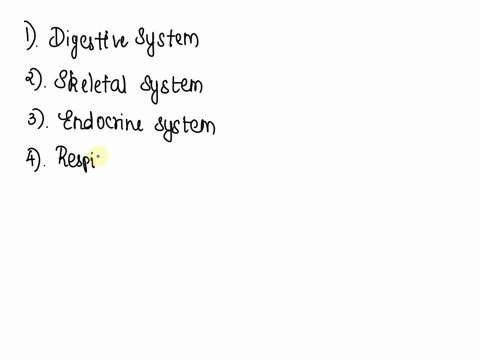 1). Digestive System
2). Skeletal System
3). Endocrine System
4). Respi